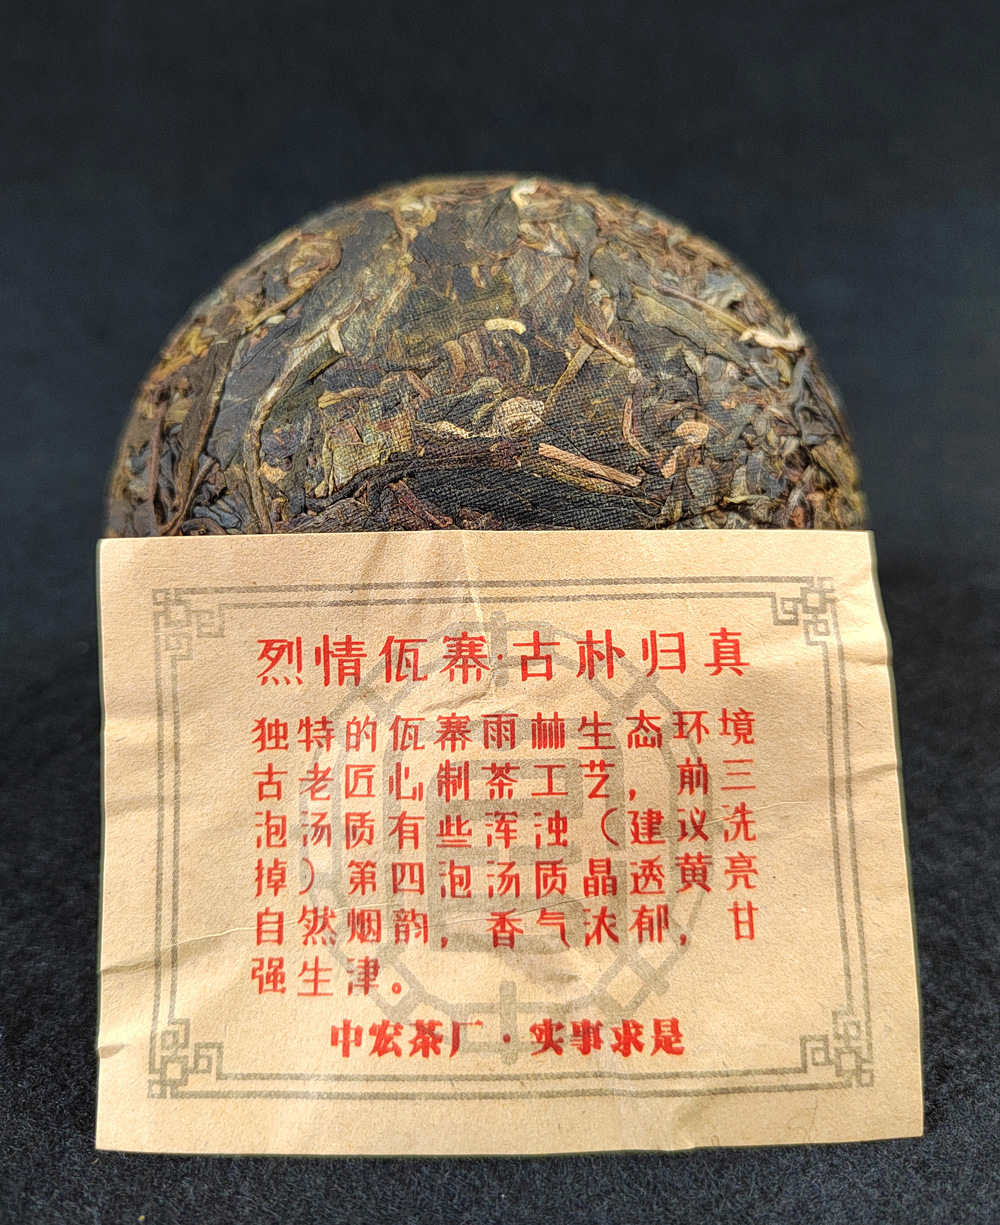 烈情佤寨·古朴归真
独特的佤寨雨林生态环境
古老匠心制茶工艺，前三
泡汤质有些浑浊（建议洗
掉）第四泡汤质晶透黄亮
自然烟韵，香气浓郁，甘
强生津。
中宏茶厂·实事求是